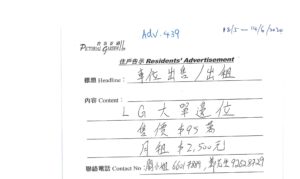 Adv. 439
13/5 — 14/6/2024
PICTORIAL GARDEN
住戶告示 Residents' Advertisement
標題 Headline : 車位出售 / 出租
內容 Content :
LG 大單邊位
售價 $95萬
月租 $2,500元
聯絡電話 Contact No :